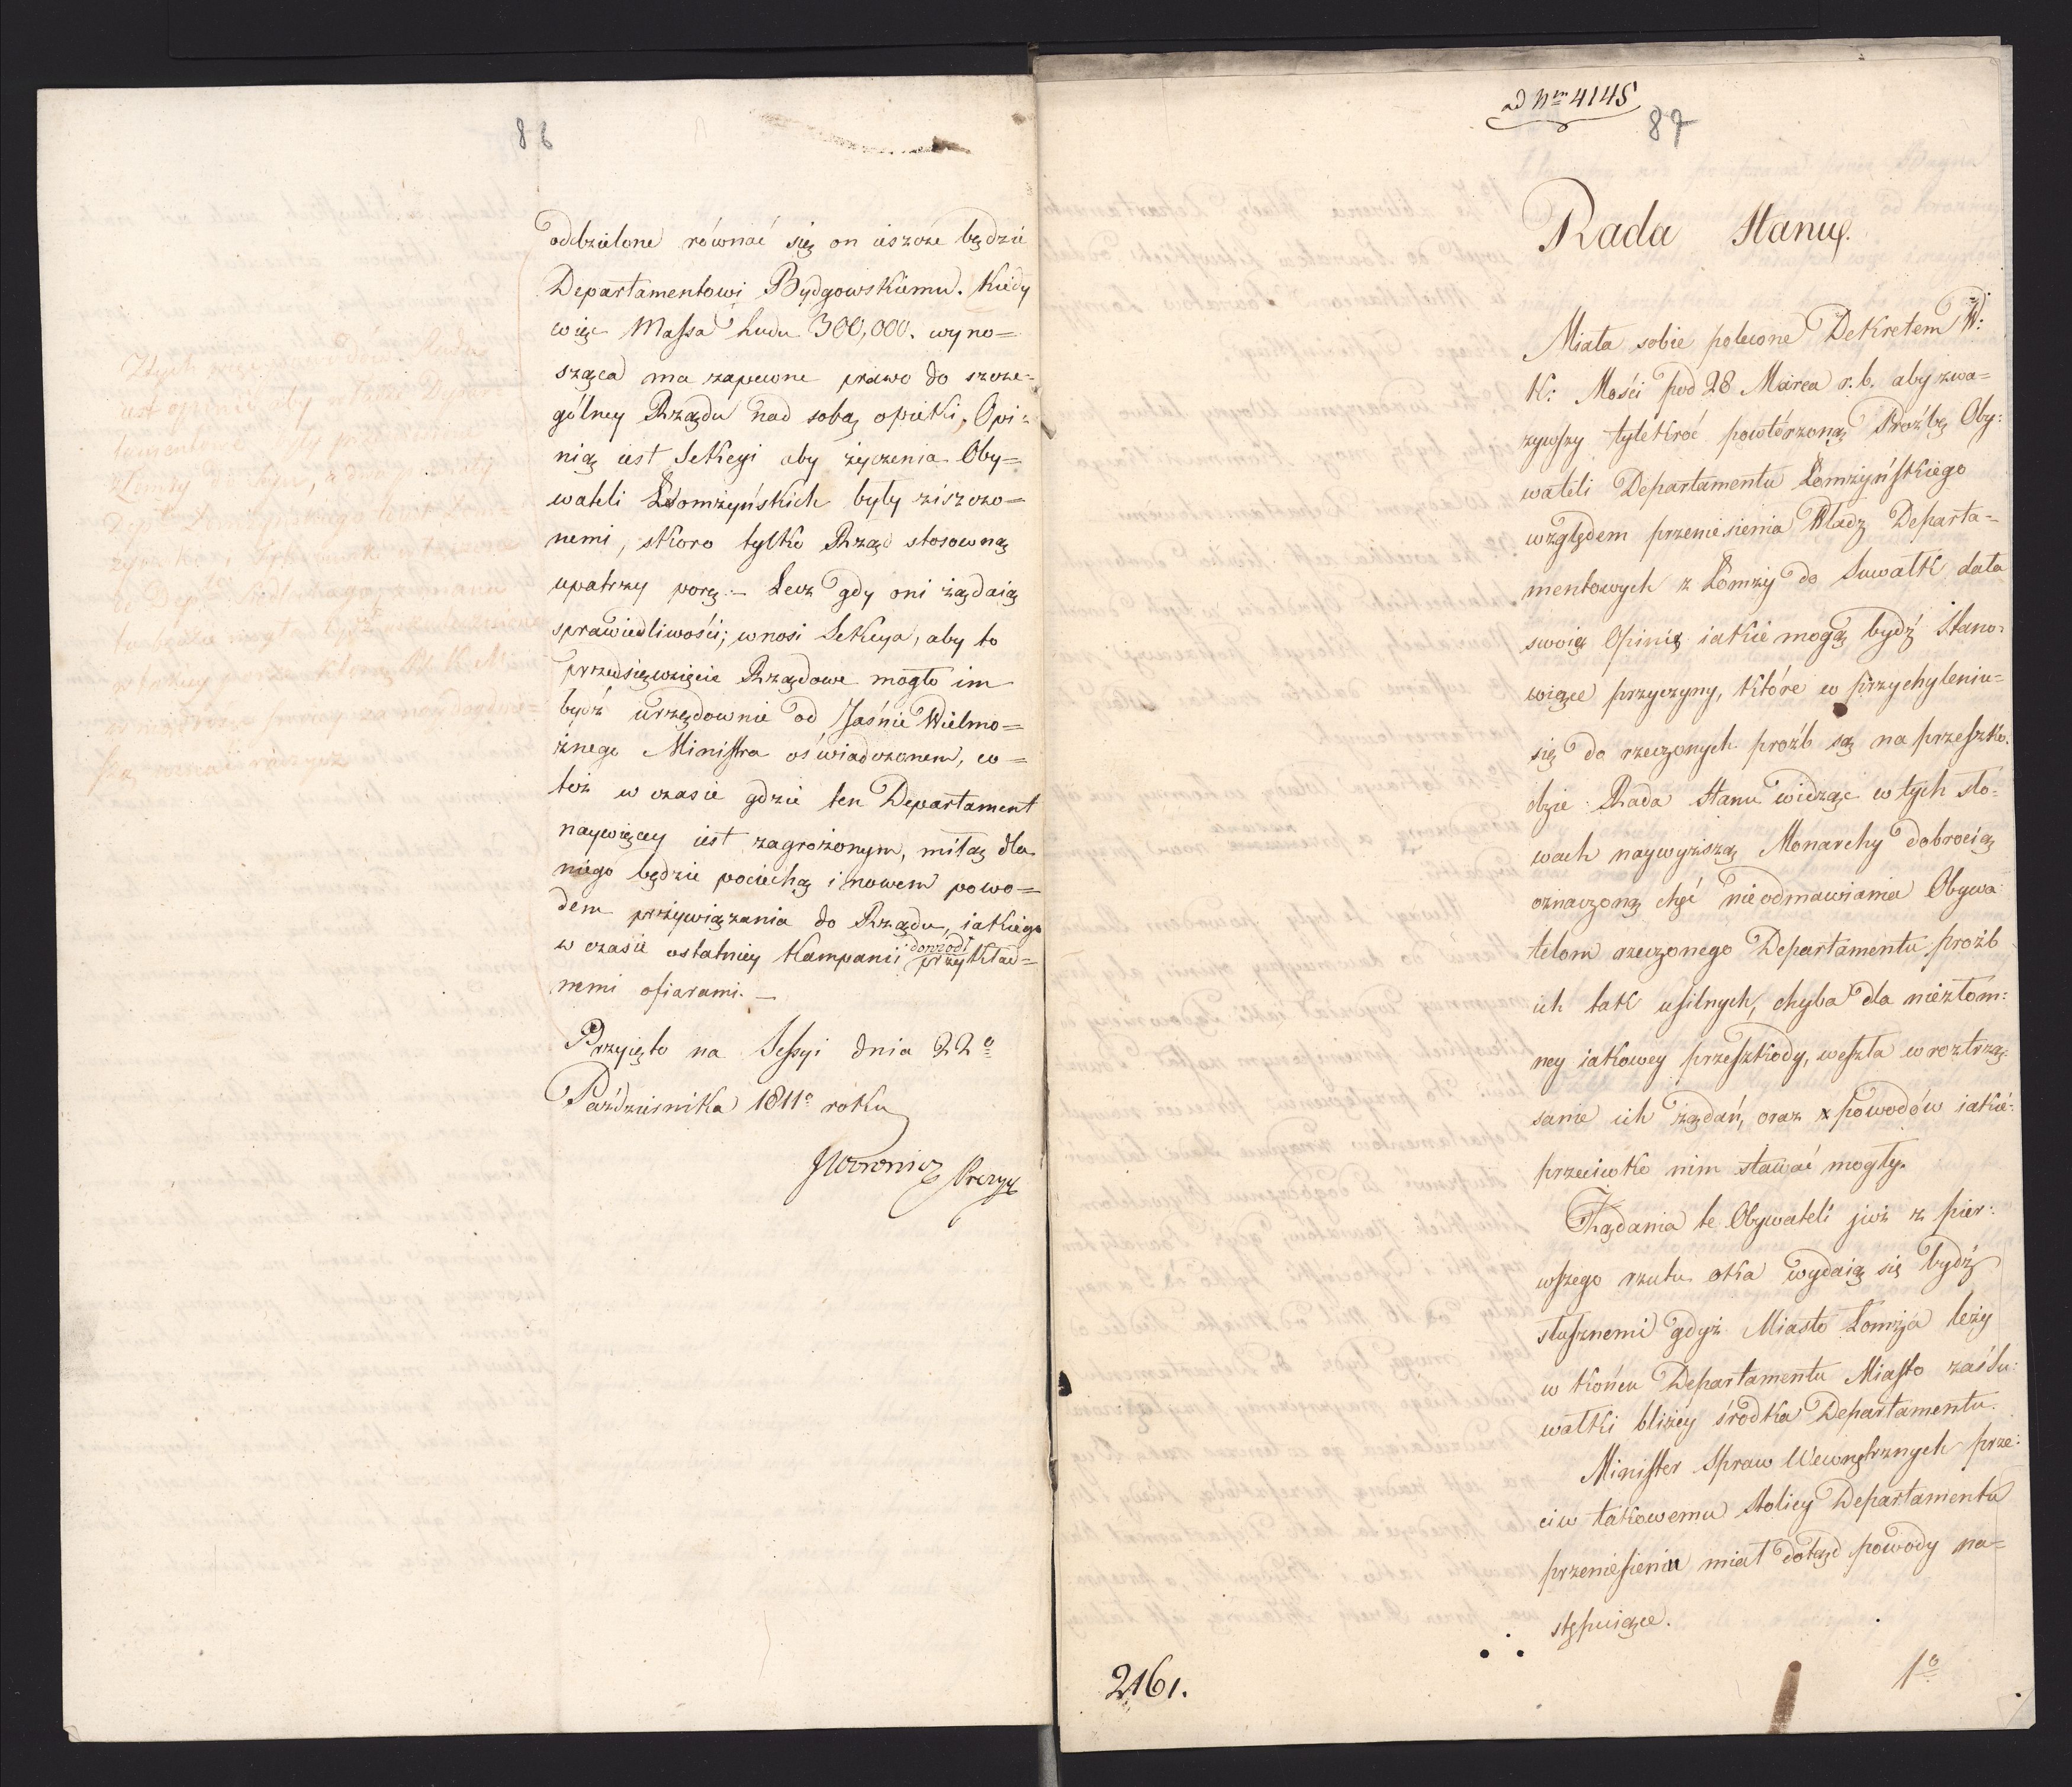 86
oddzielone równać się on ieszcze będzie
Departamentowi Bydgowskiemu. Kiedy
więc Massa Ludu 300,000. wyno=
sząca ma zapewne prawo do szcze=
gólney Rządu nad sobą opieki, Opi=
nią iest Sekcyi aby życzenia Oby=
wateli Łomżyńskich były ziszczo=
nemi, skoro tylko Rząd stosowną
upatrzy porę. – Lecz gdy oni żądaią
sprawiedliwości; wnosi Sekcya, aby to
przedsięwzięcie Rządowe mogło im
bydź urzędownie od Jaśnie Wielmo=
żnego Ministra oświadczonem, co=
też w czasie gdzie ten Departament
naywięcey iest zagrożonym, miłą dla
niego będzie pociechą i nowem powo=
dem przywiązania do Rządu, iakiego
w czasie ostatniey Kampanii dowiódł przykład=
nemi ofiarami. –
Przyięto na Sessyi dnia 22º
Października 1811º roku
JWoronicz Prezyd
Z tych więc powodów Rada
iest opinii, aby władze Depar=
tamentowe były przeniesione
z Łomży do Seyn, a dwa powiaty
Dept Łomżyńskiego
ad Nrm 4145
87
Rada Stanu.
Miała sobie polecone Dekretem W:
K: Mości pod 28 Marca r. b. aby zwa=
żywszy tylekroć powtórzoną Proźbę Oby:
wateli Departamentu Łomżyńskiego
względem przeniesienia Władz Departa=
mentowych z Łomży do Suwałk dała
swoią Opinię iakie mogą bydź Stano=
wiące przyczyny, które w przychyleniu=
się do rzeczonych proźb są na przeszko.
dzie Rada Stanu widząc w tych sło=
wach naywyższą Monarchy dobrocią
oznaczoną chęć nieodmawiania Obywa
telom rzeczonego Departamentu proźb
ich tak usilnych, chyba dla niezłom:
ney iakowey przeszkody, weszła w roztrzą=
sanie ich żądań, oraz powodów iakie:
przeciwko nim stawać mogły.
Żądania te Obywateli już z pier:
wszego rzutu oka wydaią się bydź
słusznemi gdyż Miasto Łomża leży
w końcu Departamentu Miasto zaś Su:
wałki bliżey środka Departamentu.
Minister Spraw Wewnętrznych prze:
ciw takowemu stolicy Departamentu
przeniesieniu miał dotąd powody na=
stępuiące.
1º
2161.